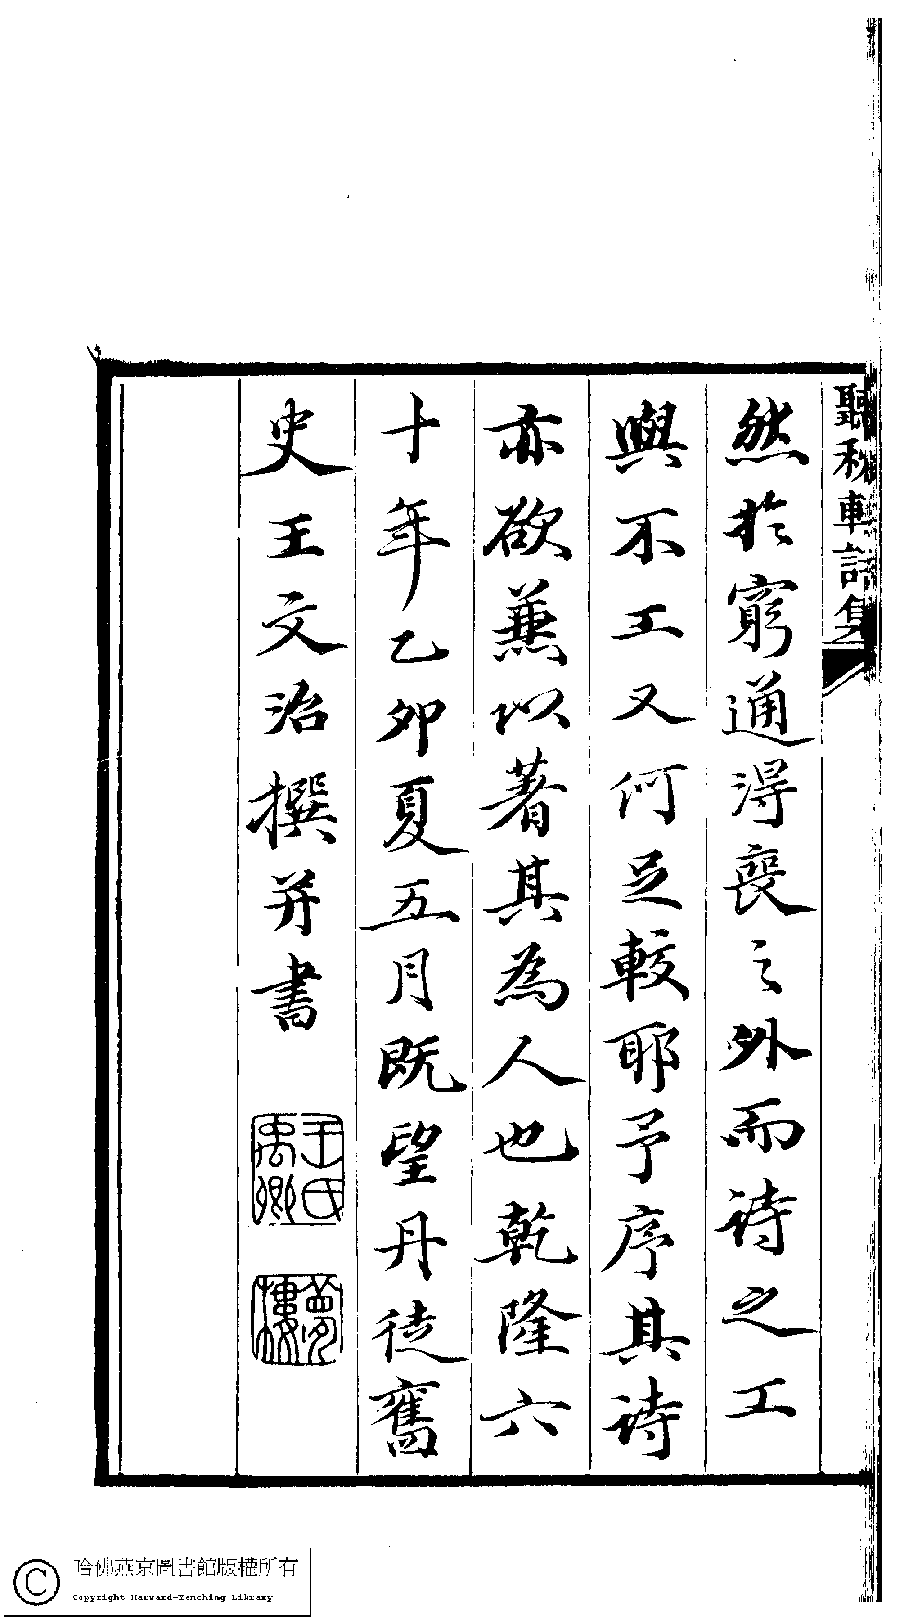 聽秋軒詩集
然於窮通得喪之外而诗之工
與不工又何足較耶予序其诗
亦欲兼以著其為人也乾隆六
十年乙卯夏五月既望丹徒舊
史王文治撰并書
王氏禹卿
夢樓
哈佛燕京圖書館版權所有
Copyright Harvard-Yenching Library